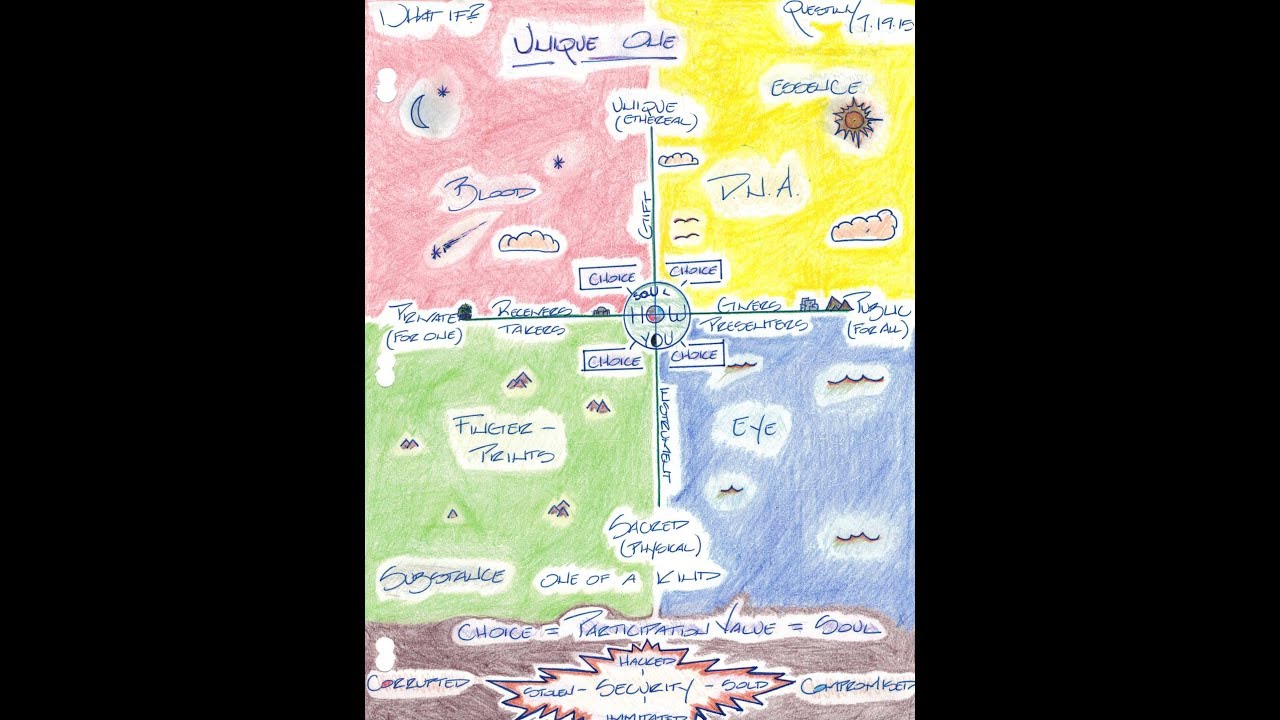 WHAT IF?
7.19.15
UNIQUE ONE
ESSENCE
UNIQUE
(ETHEREAL)
BLOOD
D.N.A.
GIFT
CHOICE
CHOICE
SOUL
PRIVATE
(FOR ONE)
RECEIVERS
TAKERS
HOW
GIVERS
PRESENTERS
PUBLIC
(FOR ALL)
YOU
CHOICE
CHOICE
INSTRUMENT
FINGER-
PRINTS
EYE
SACRED
(PHYSICAL)
SUBSTANCE
ONE OF A KIND
CHOICE = PARTICIPATION VALUE = SOUL
HACKED
CORRUPTED
STOLEN - SECURITY - SOLD
COMPROMISED
IMMITATED